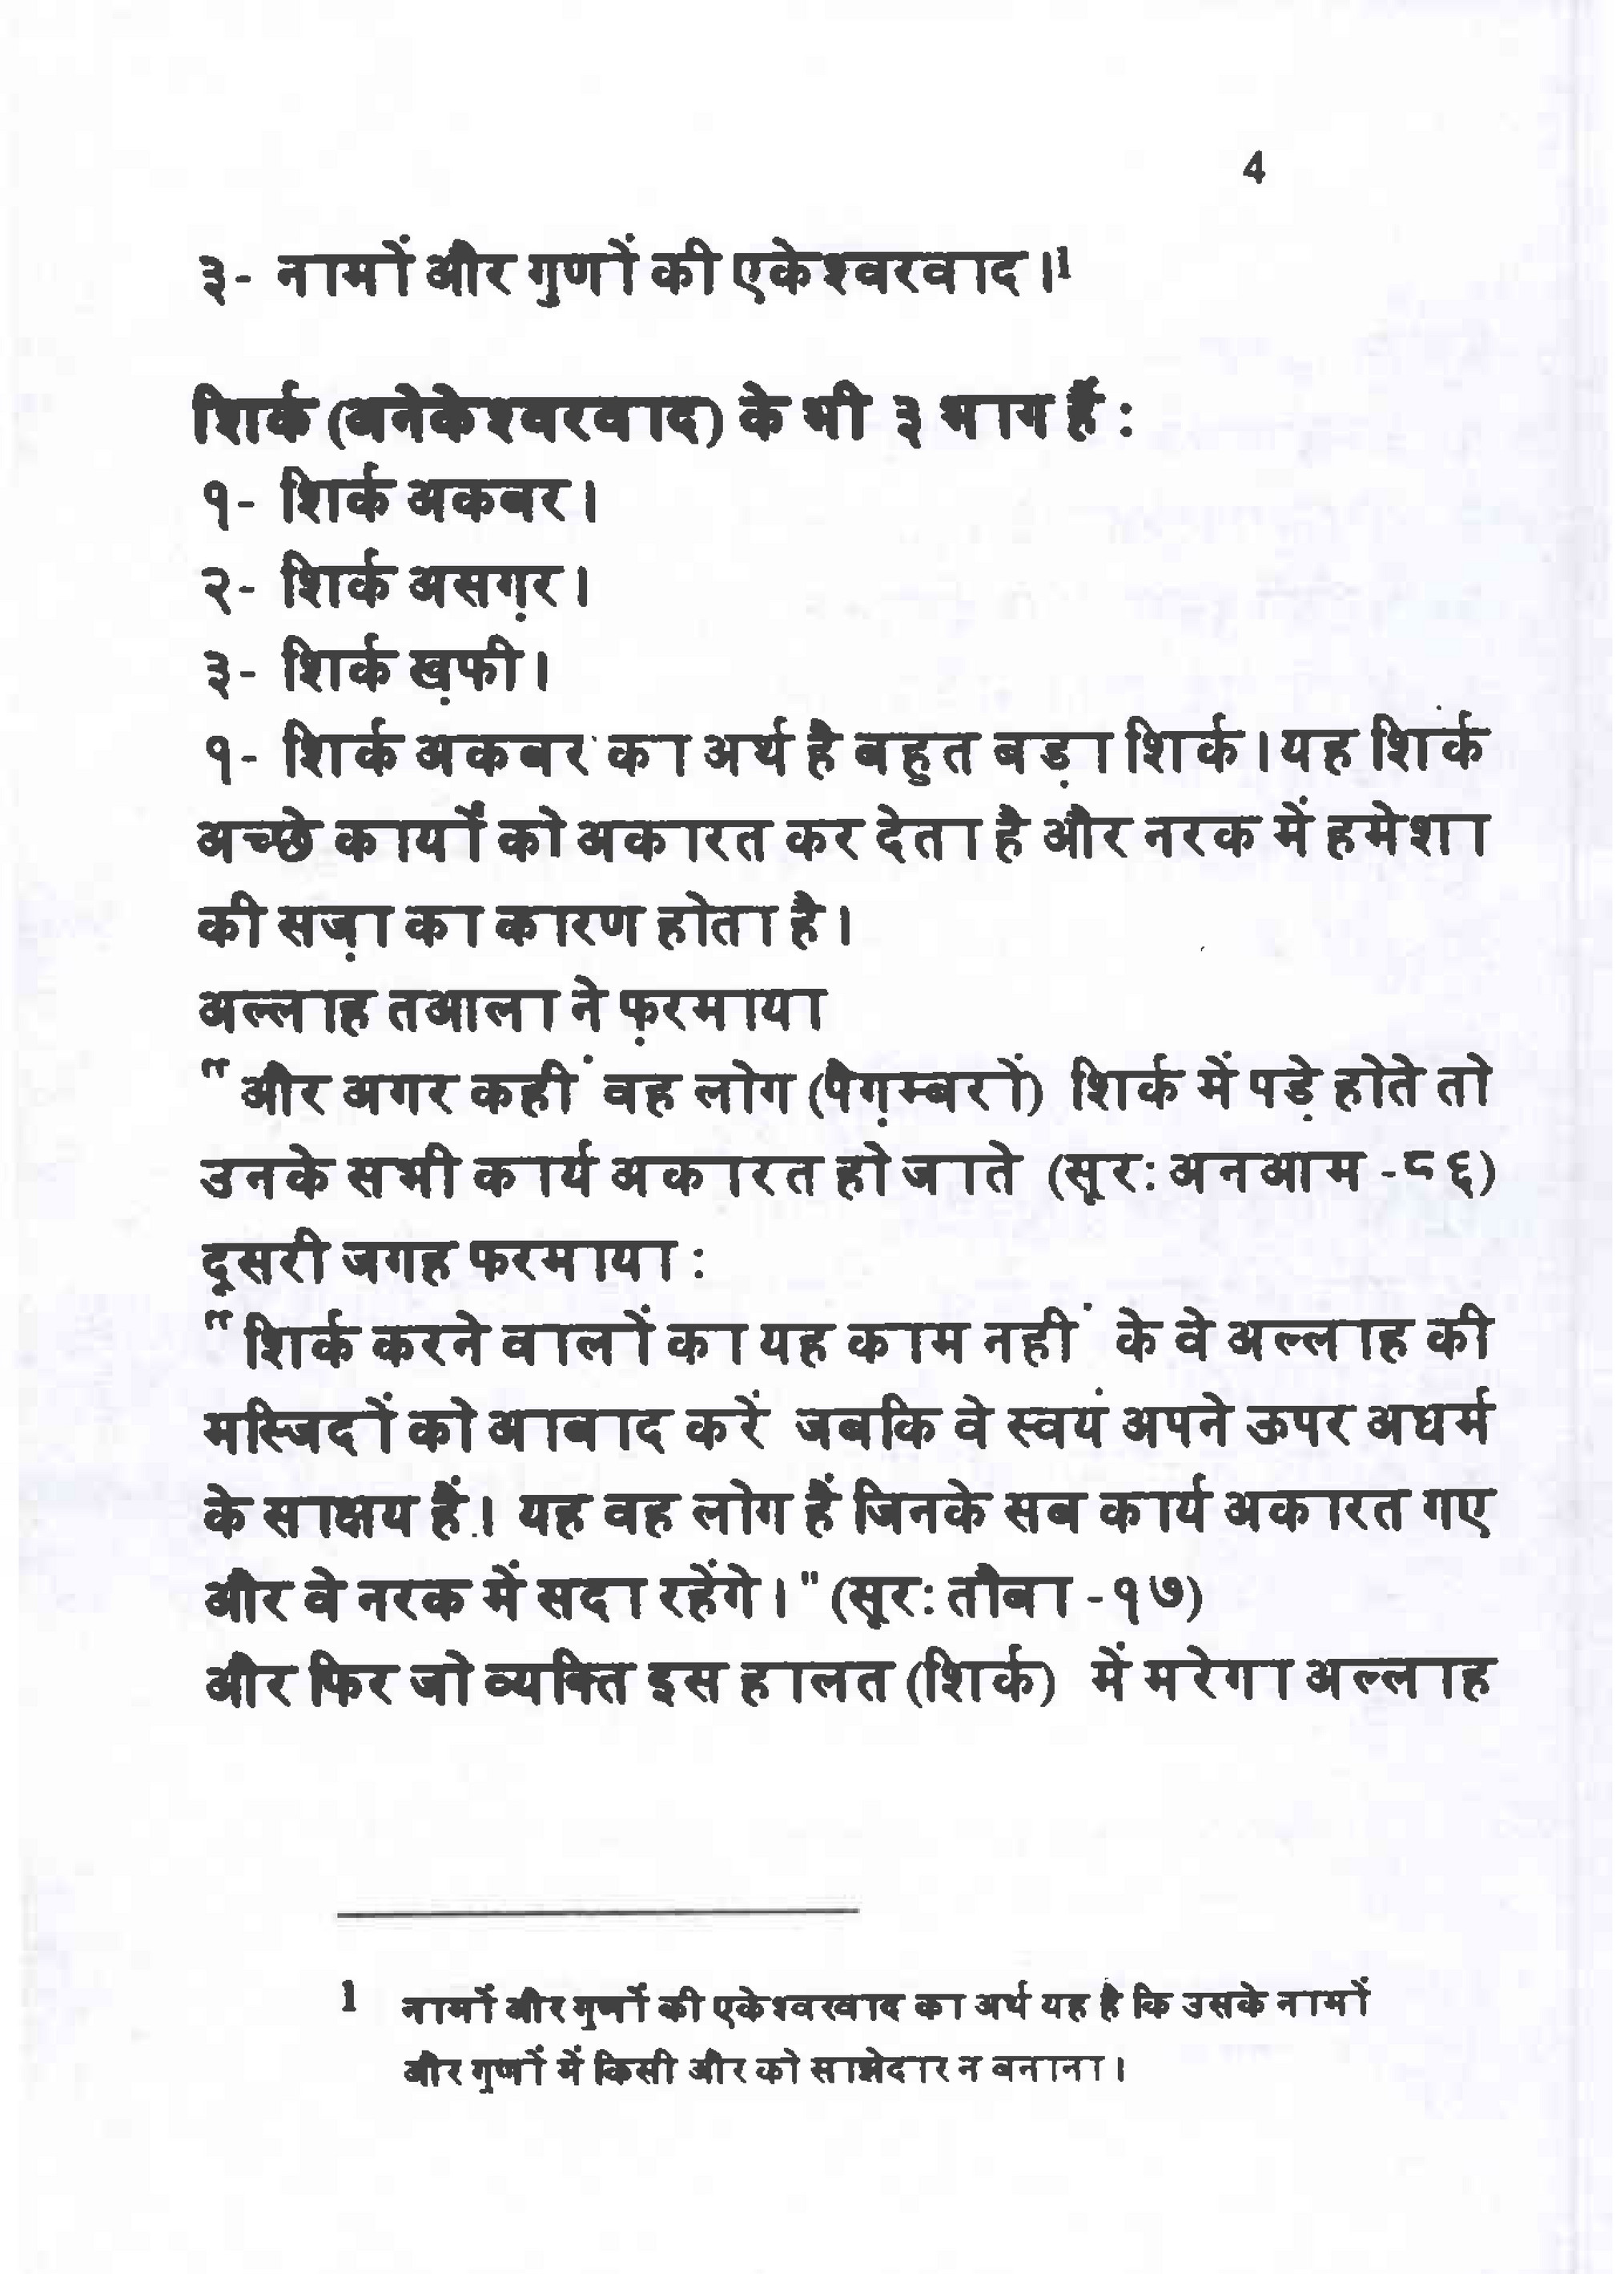 4
३- नामों और गुणों की एकेश्वरवाद।¹
शिर्क (अनेकेश्वरवाद) के भी ३ भाग हैं :
१- शिर्क अकबर।
२- शिर्क असग़र।
३- शिर्क ख़फी।
१- शिर्क अकबर का अर्थ है बहुत बड़ा शिर्क। यह शिर्क
अच्छे कार्यों को अकारत कर देता है और नरक में हमेशा
की सज़ा का कारण होता है।
अल्लाह तआला ने फ़रमाया
"और अगर कहीं वह लोग (पैग़म्बरों) शिर्क में पड़े होते तो
उनके सभी कार्य अकारत हो जाते (सूर: अनआम -८६)
दूसरी जगह फरमाया :
"शिर्क करने वालों का यह काम नहीं के वे अल्लाह की
मस्जिदों को आबाद करें जबकि वे स्वयं अपने ऊपर अधर्म
के साक्षय हैं। यह वह लोग हैं जिनके सब कार्य अकारत गए
और वे नरक में सदा रहेंगे।" (सूर: तौबा -१७)
और फिर जो व्यक्ति इस हालत (शिर्क) में मरेगा अल्लाह
1 नामों और गुणों की एकेश्वरवाद का अर्थ यह है कि उसके नामों
और गुणों में किसी और को साझेदार न बनाना।